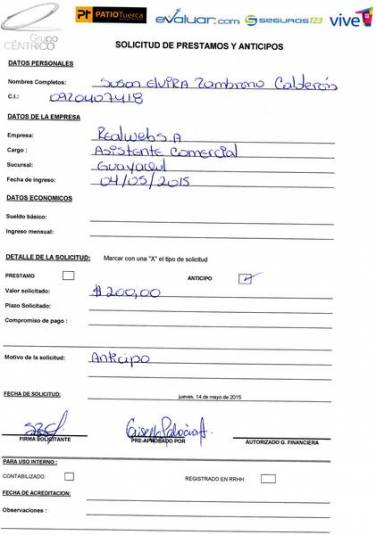 Grupo CÉNTRICO PT PATIOTuerca evaluar.com SEGUROS123 vive1
SOLICITUD DE PRESTAMOS Y ANTICIPOS
DATOS PERSONALES
Nombres Completos: Susan Elvira Zambrano Calderón
C.I.: 0920407418
DATOS DE LA EMPRESA
Empresa: Realweb S.A
Cargo : Asistente Comercial
Sucursal: Guayaquil
Fecha de ingreso: 04/05/2015
DATOS ECONOMICOS
Sueldo básico:
Ingreso mensual:
DETALLE DE LA SOLICITUD: Marcar con una "X" el tipo de solicitud
PRESTAMO ANTICIPO
Valor solicitado: $200,00
Plazo Solicitado:
Compromiso de pago :
Motivo de la solicitud: Anticipo
FECHA DE SOLICITUD: jueves, 14 de mayo de 2015
FIRMA SOLICITANTE PRE-APROBADO POR AUTORIZADO G. FINANCIERA
PARA USO INTERNO :
CONTABILIZADO: REGISTRADO EN RRHH
FECHA DE ACREDITACION:
Observaciones :